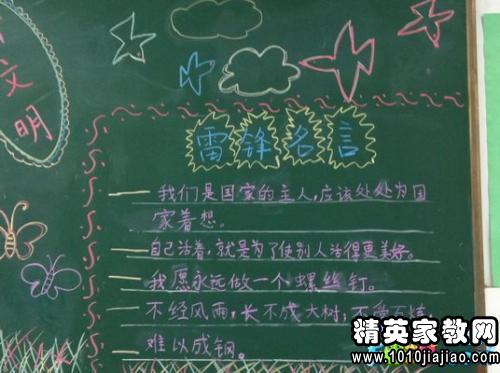 文明
雷锋名言
我们是国家的主人,应该处处为国
家着想。
自己活着,就是为了使别人活得更美好。
我愿永远做一个螺丝钉。
不经风雨,长不成大树;不受百炼
难以成钢。
精英家教网
www.1010jiajiao.com